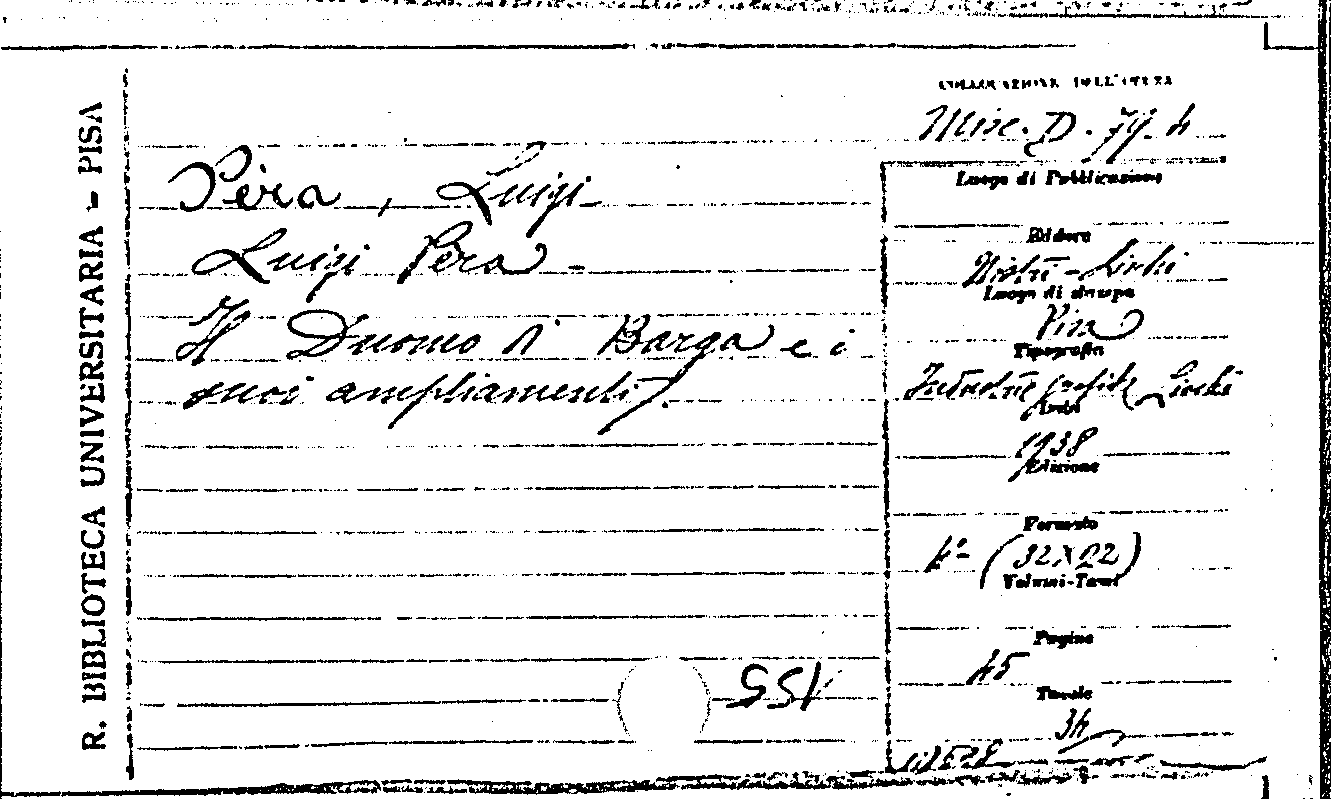 R. BIBLIOTECA UNIVERSITARIA - PISA
COLLOCAZIONE DELL'OPERA
Misc. D. 79. 4
Pèra, Luigi
Luigi Pèra -
Il Duomo di Barga e i
suoi ampliamenti.
Luogo di Pubblicazione
Editore
Nistri-Lischi
Luogo di stampa
Pisa
Tipografia
Industrie grafiche Lischi
Anno
1938
Edizione
Formato
4º (32X22)
Volumi-Tomi
Pagine
45
Tavole
34